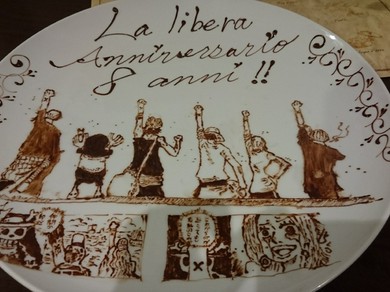 La libera
Anniversario
8 anni !!